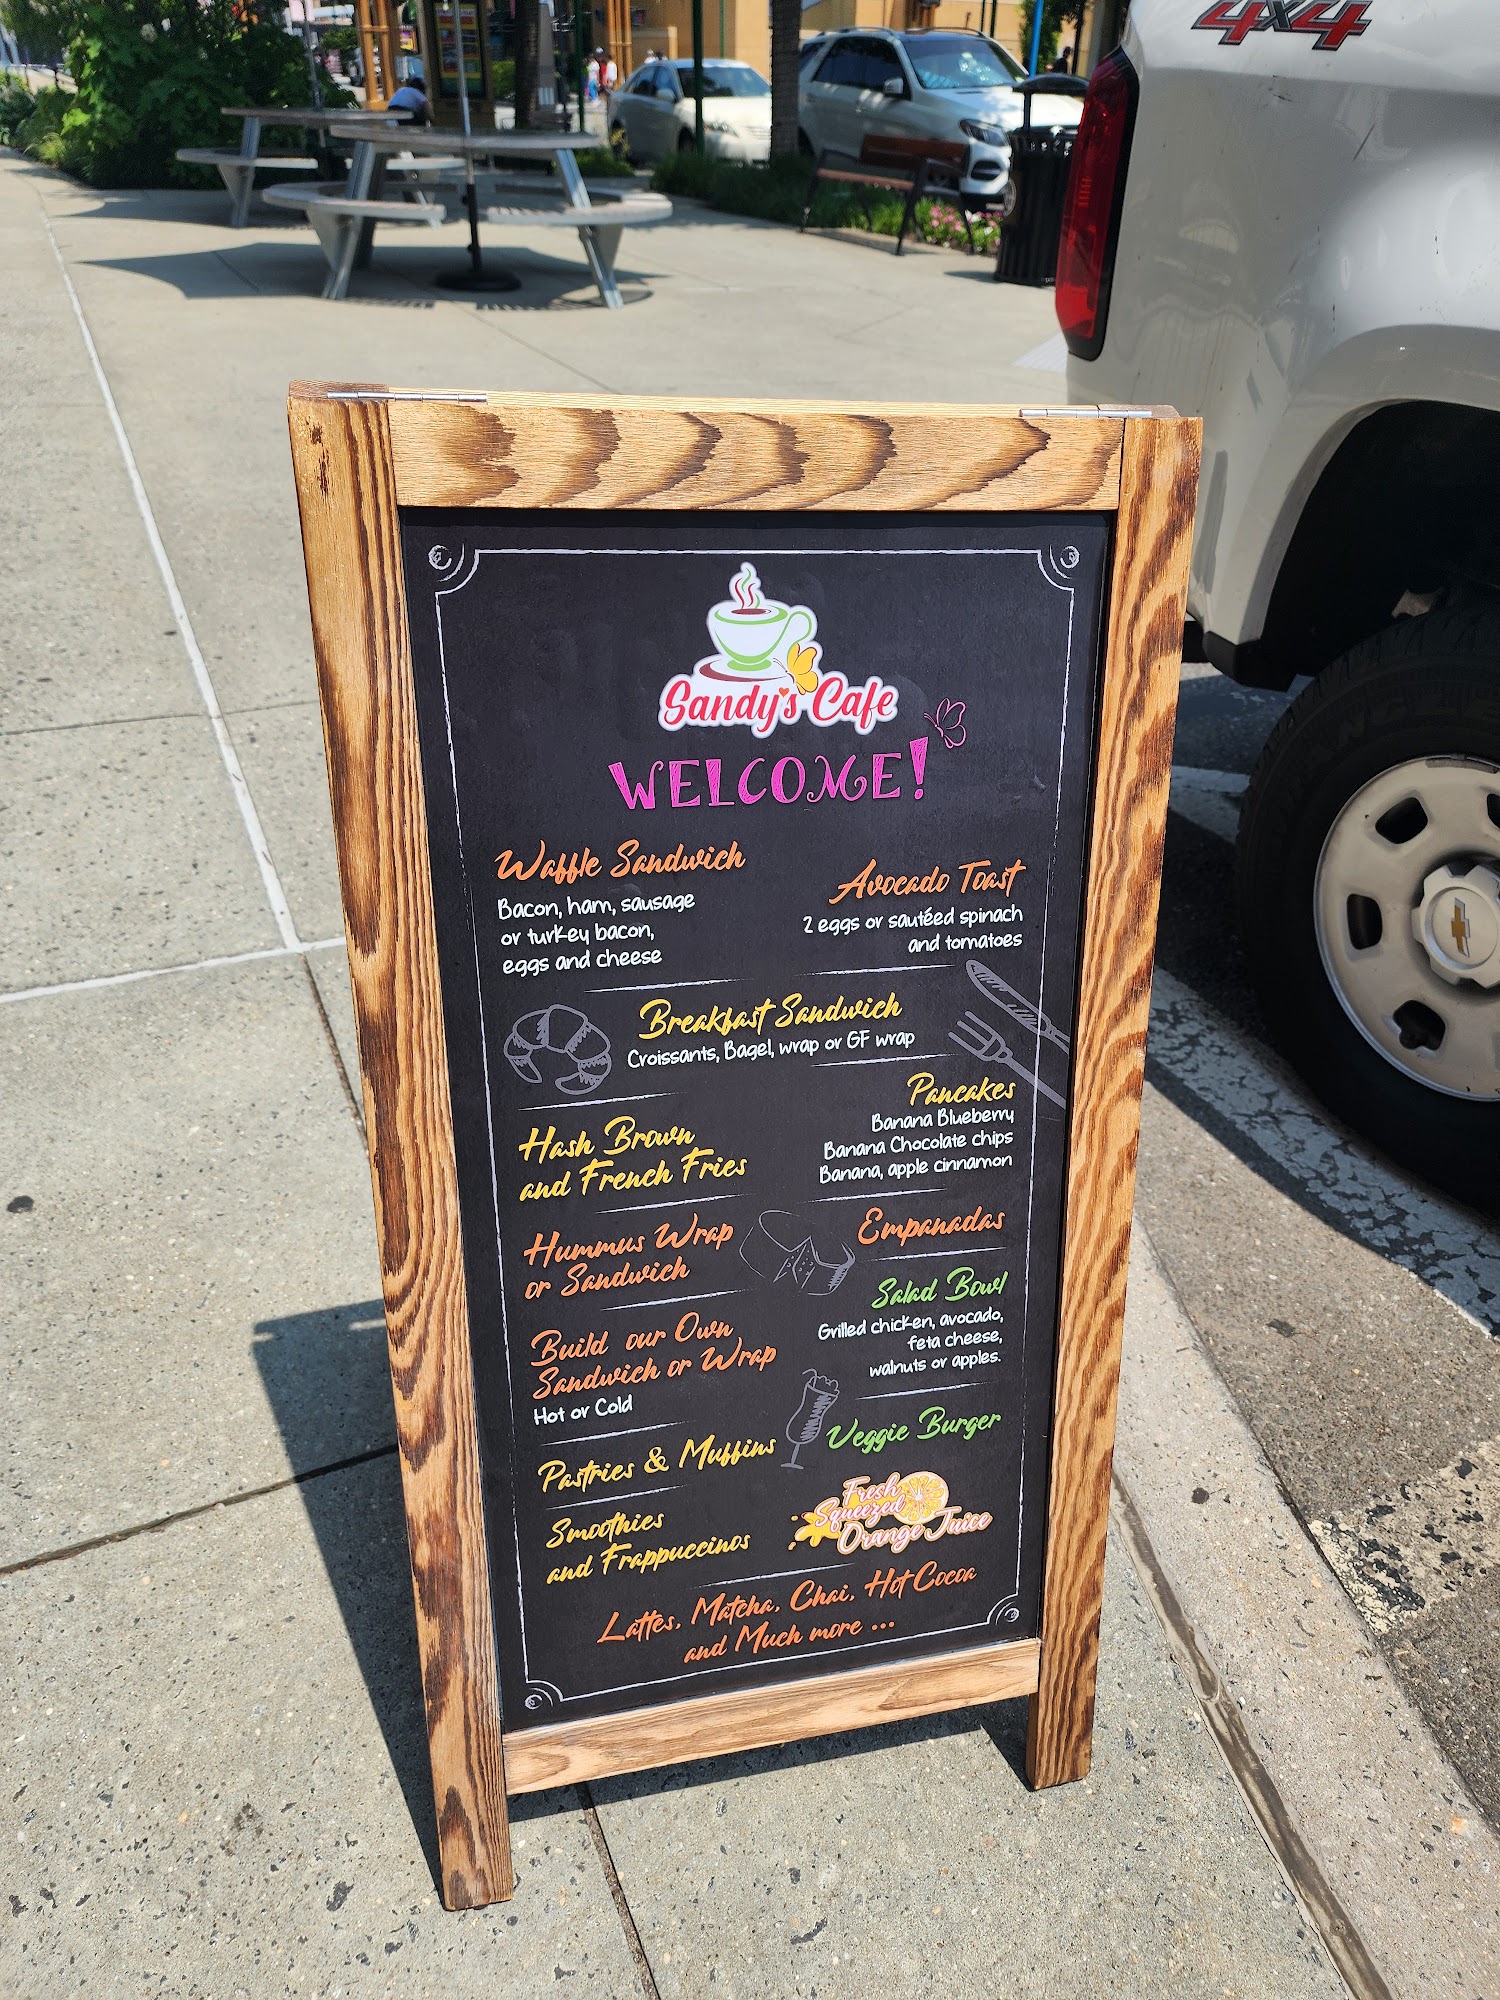 4x4
Sandy's Cafe
WELCOME!
Waffle Sandwich
Bacon, ham, sausage
or turkey bacon,
eggs and cheese
Avocado Toast
2 eggs or sautéed spinach
and tomatoes
Breakfast Sandwich
Croissants, Bagel, wrap or GF wrap
Pancakes
Banana Blueberry
Banana Chocolate chips
Banana, apple cinnamon
Hash Brown
and French Fries
Empanadas
Hummus Wrap
or Sandwich
Salad Bowl
Grilled chicken, avocado,
feta cheese,
walnuts or apples.
Build our Own
Sandwich or Wrap
Hot or Cold
Veggie Burger
Pastries & Muffins
Fresh
Squeezed
Orange Juice
Smoothies
and Frappuccinos
Lattes, Matcha, Chai, Hot Cocoa
and Much more ...